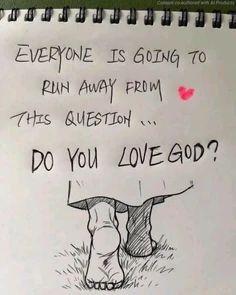 Content co-authored with AI Products
EVERYONE IS GOING TO
RUN AWAY FROM
THIS QUESTION ...
DO YOU LOVE GOD?